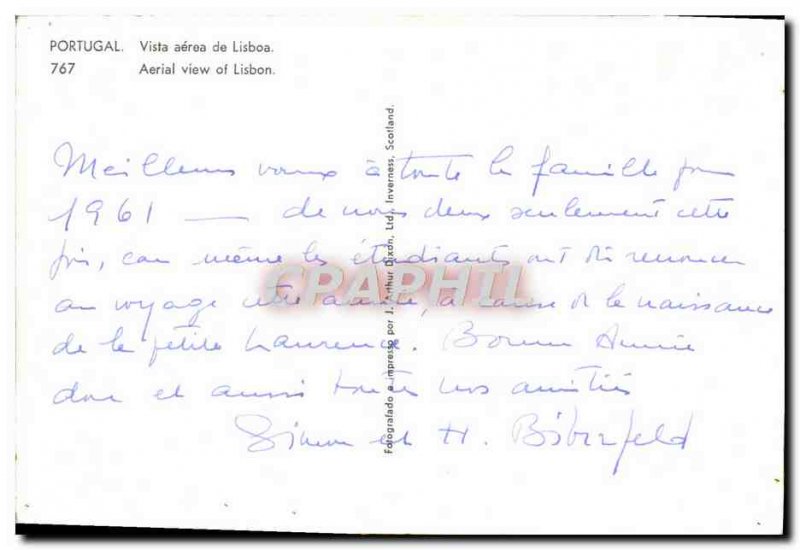 PORTUGAL. Vista aérea de Lisboa.
767 Aerial view of Lisbon.
Meilleurs vœux à toute la famille pour
1961 — de nous deux seulement cette
fois, car même les étudiants ont dû renoncer
au voyage cette année, à cause de la naissance
de la petite Laurence. Bonne Année
donc et aussi toutes nos amitiés
Simon et H. Biberfeld
Fotografado e impresso por J. Arthur Dixon, Ltd., Inverness, Scotland.
CPAPHIL